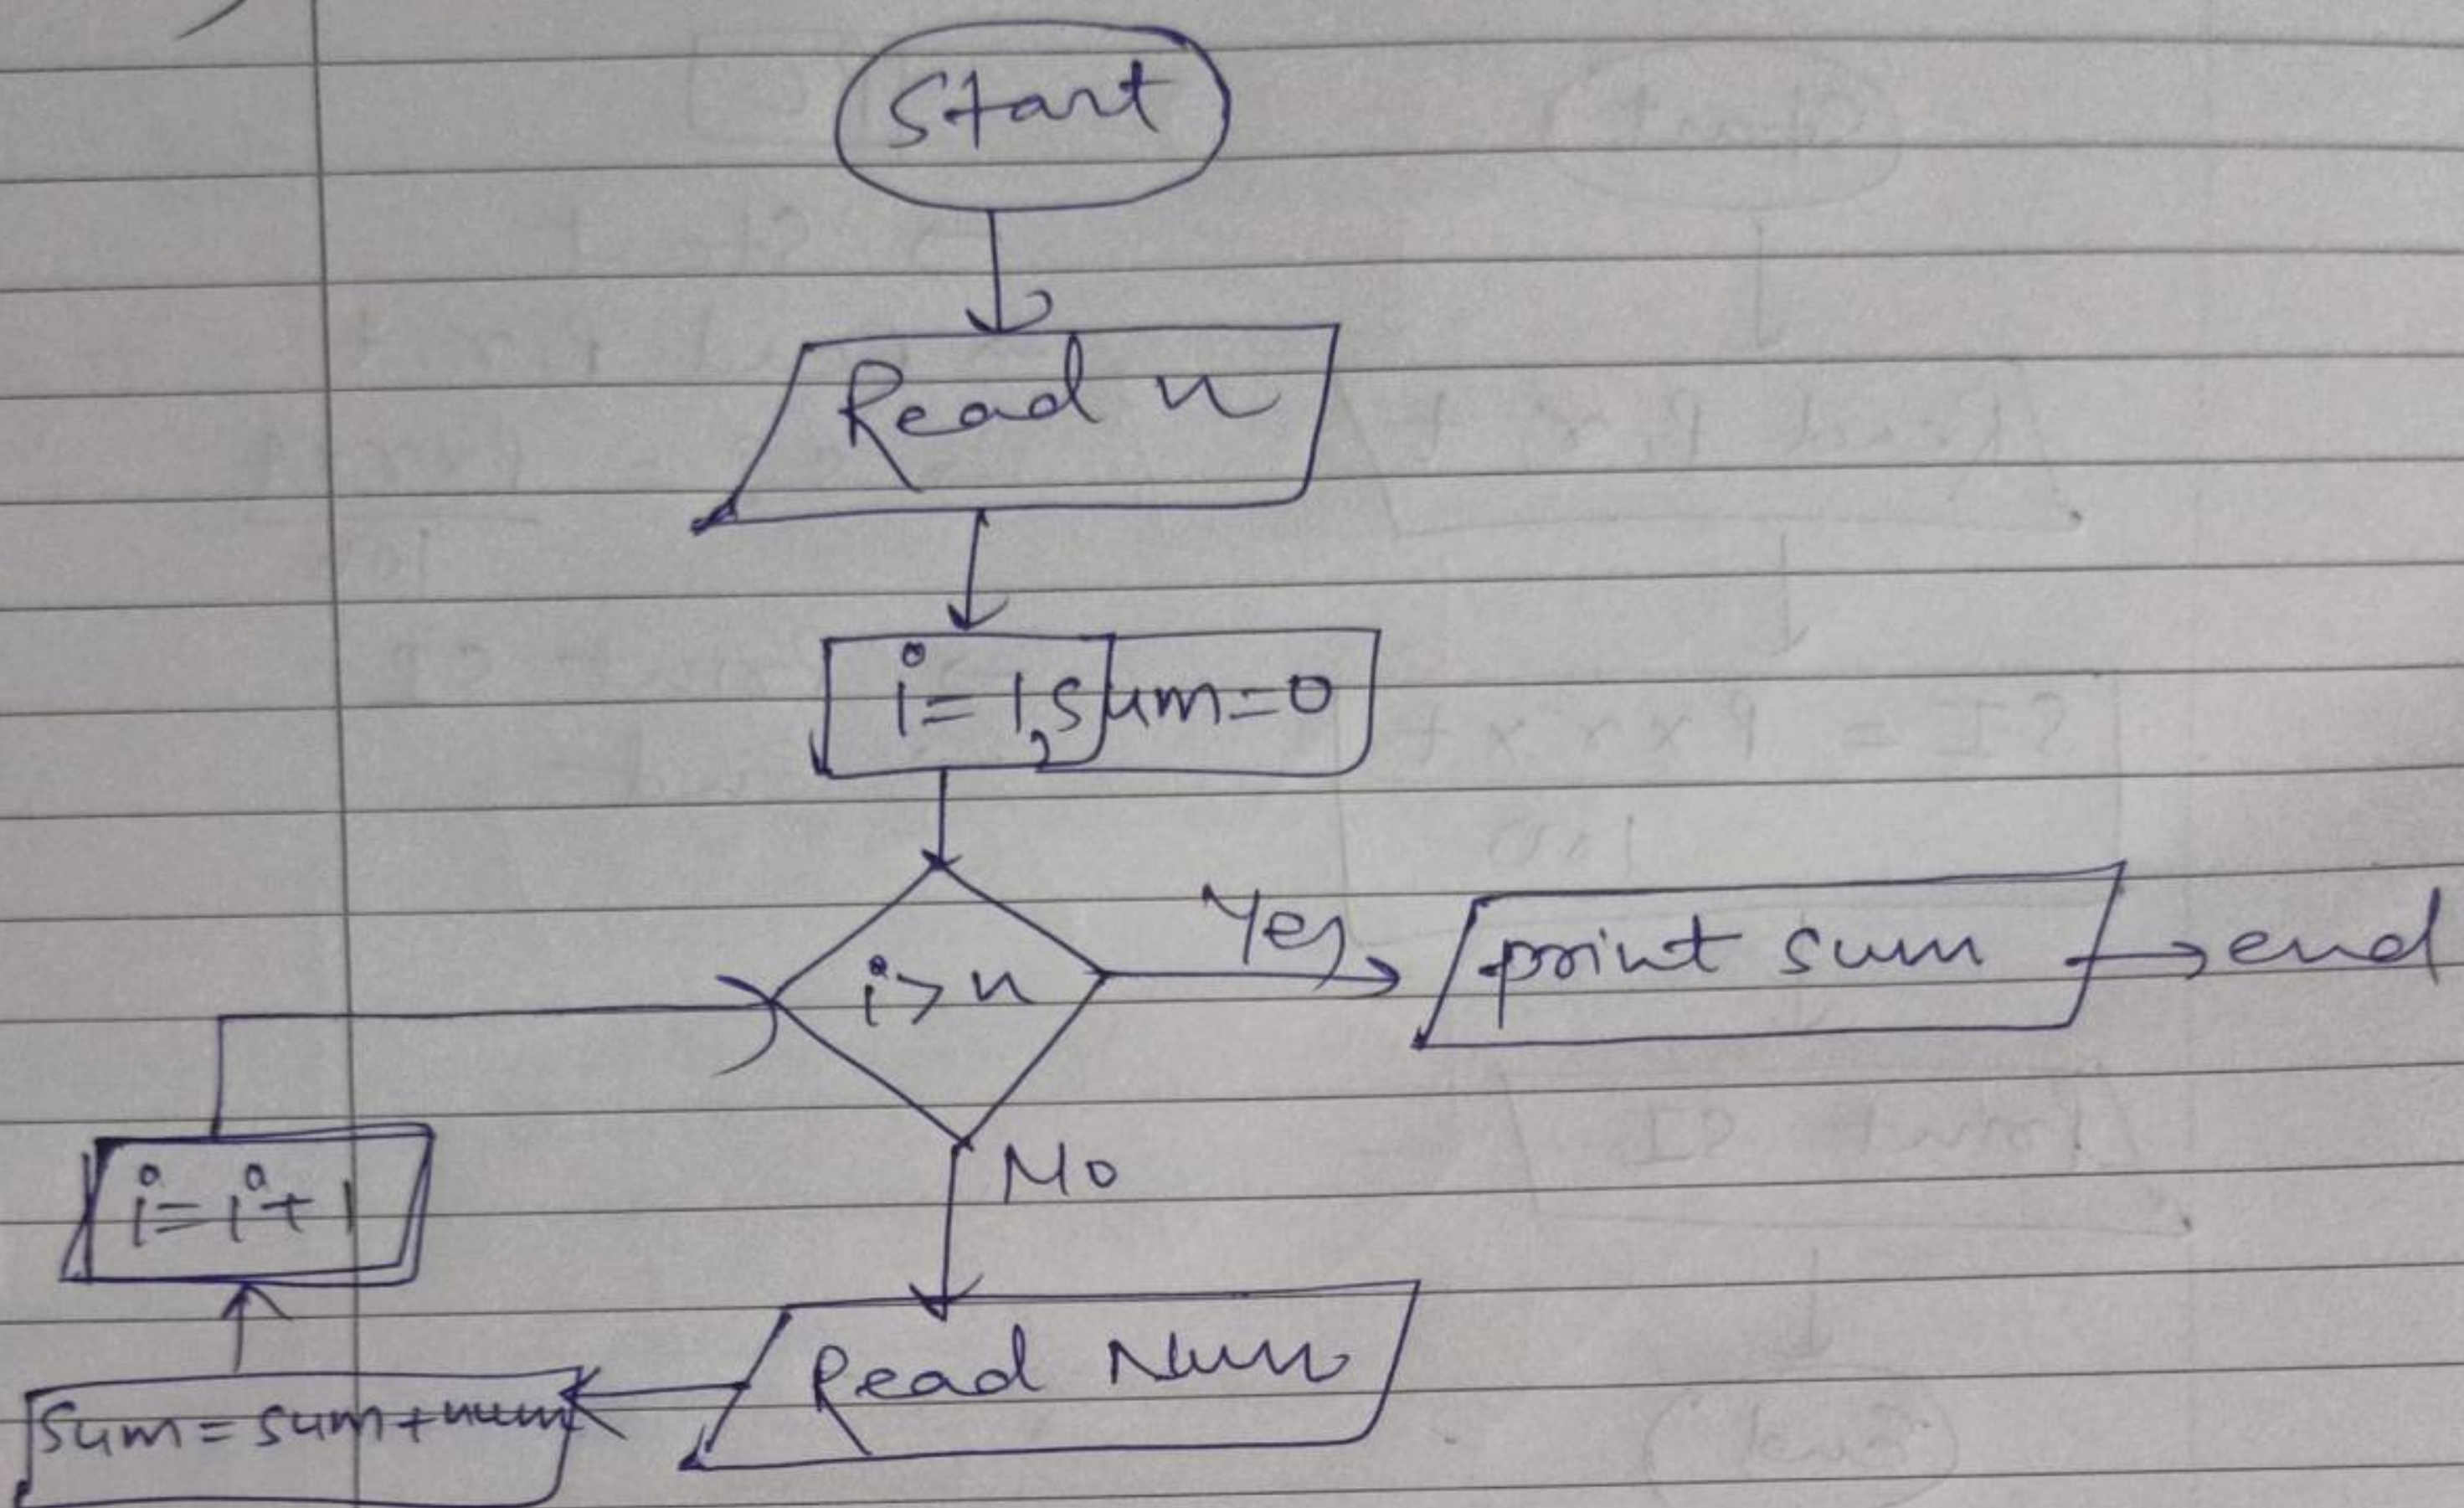 Start
Read n
i=1, sum=0
i>n
Yes
print sum
end
No
Read Num
sum=sum+num
i=i+1